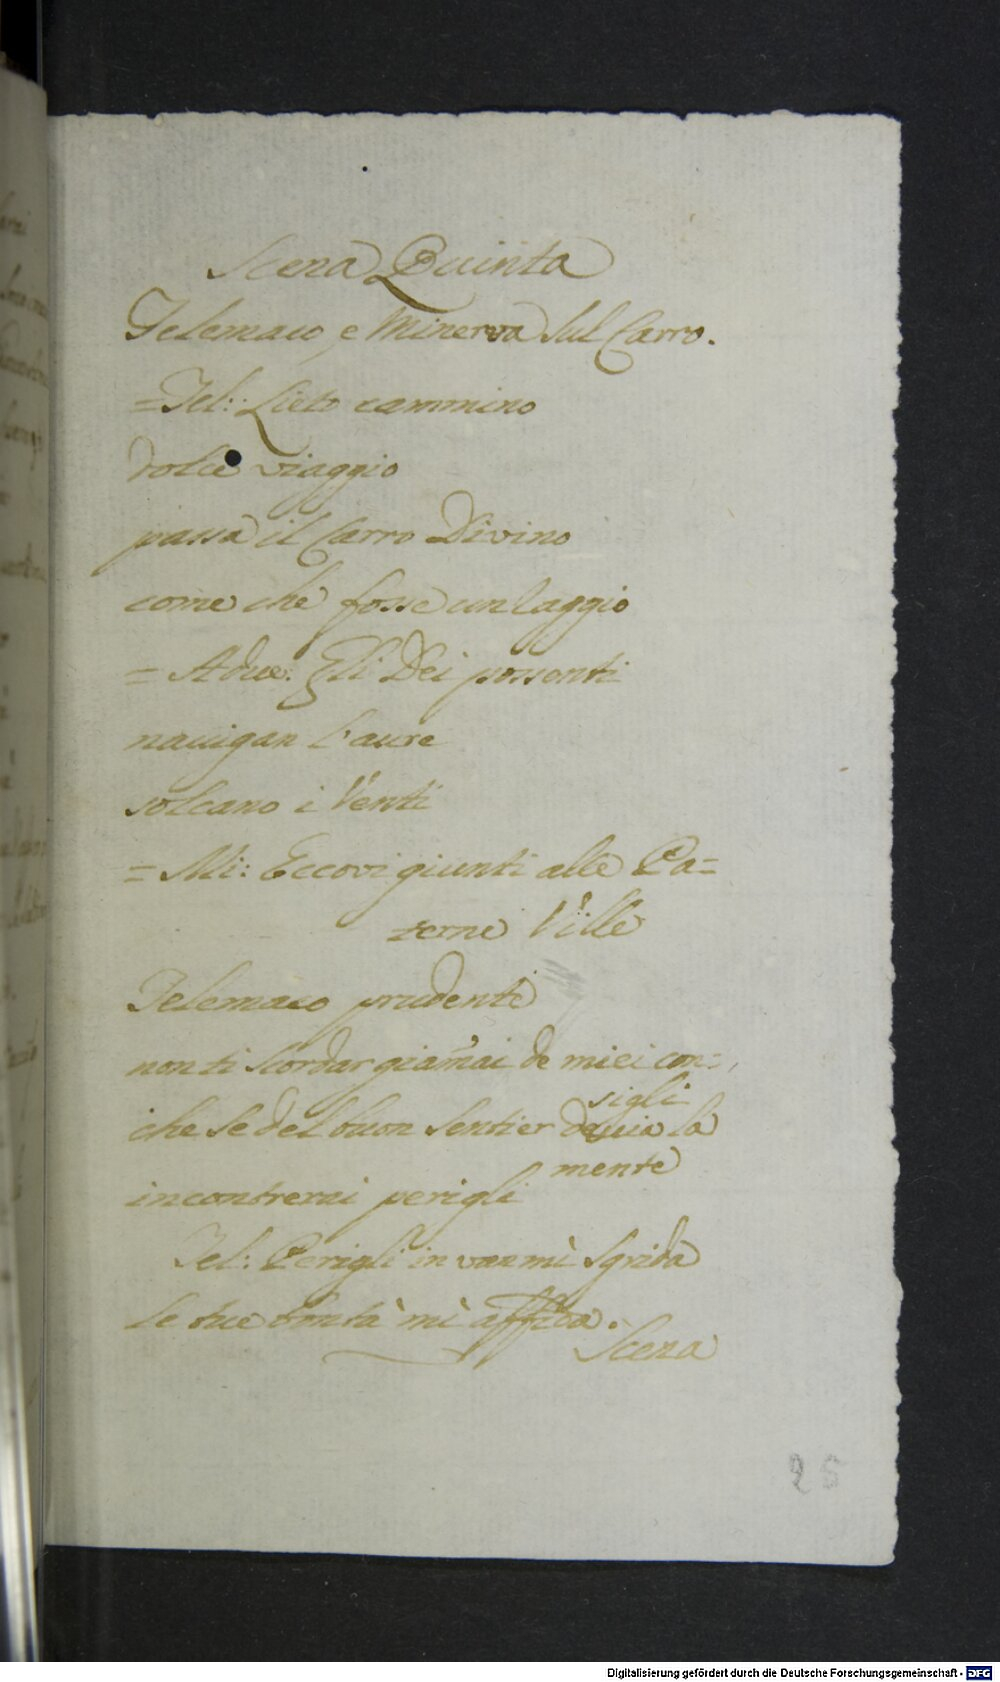 Scena Quinta
Telemaco, e Minerva sul Carro.
=Tel: Lieto cammino
dolce viaggio
passa il Carro Divino
come che fosse un laggio
= A due: Gli Dei possenti
nauigan l'aure
solcano i Venti
= Mi: Eccovi giunti alle Pa=
terne Ville
Telemaco prudente
non ti scordar giam̃ai de miei con=
sigli
che se del buon sentier deuia la
mente
incontrerai perigli
Tel: Perigli in van mì sgrida
le tue bontà mì affida.
Scena
25
Digitalisierung gefördert durch die Deutsche Forschungsgemeinschaft - DFG